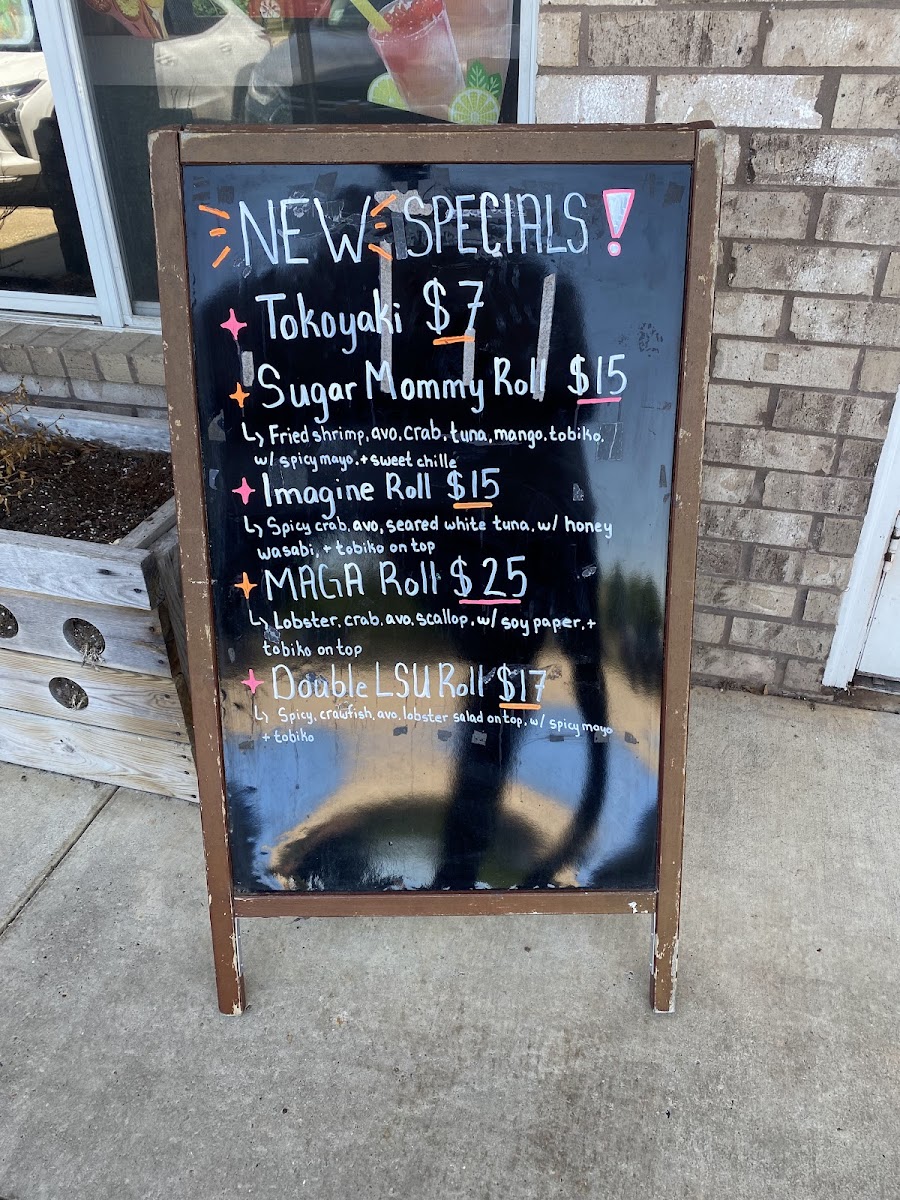 NEW SPECIALS!
Tokoyaki $7
Sugar Mommy Roll $15
↳ Fried shrimp, avo, crab, tuna, mango, tobiko,
w/ spicy mayo + sweet chille
Imagine Roll $15
↳ Spicy crab, avo, seared white tuna, w/ honey
wasabi, + tobiko on top
MAGA Roll $25
↳ Lobster, crab, avo, scallop, w/ soy paper, +
tobiko on top
Double LSU Roll $17
↳ Spicy, crawfish, avo, lobster salad on top, w/ spicy mayo
+ tobiko